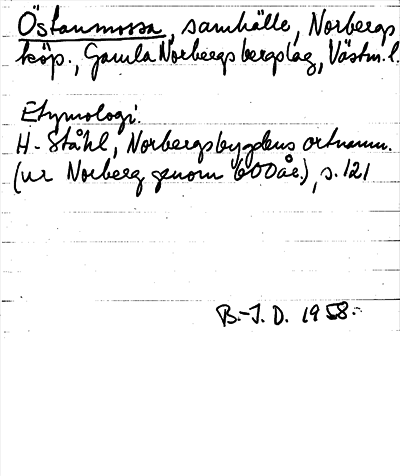 Östanmossa, samhälle, Norbergs
köp., Gamla Norbergs bergslag, Västm. l.
Etymologi:
H. Ståhl, Norbergsbygdens ortnamn.
(ur Norberg genom 600 år), s. 121
B.-J. D. 1958.